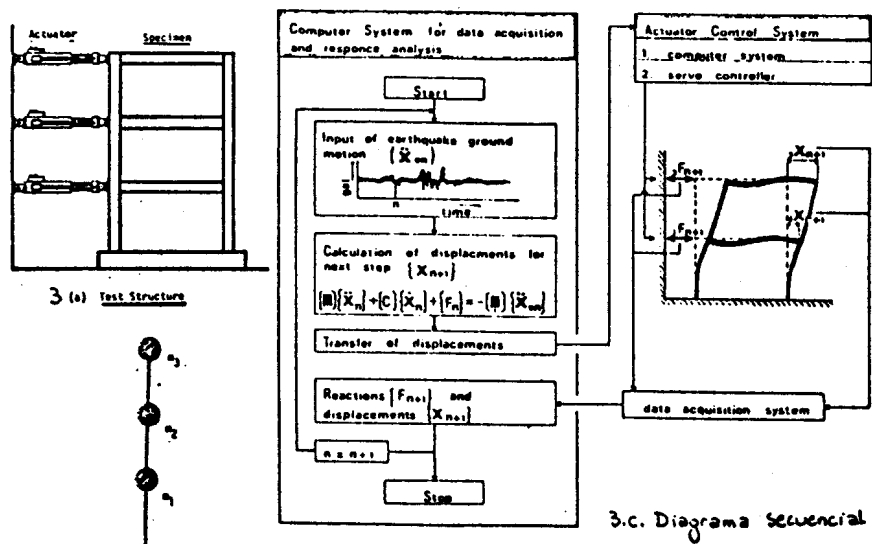 Actuator
Specimen
3 (a) Test Structure
m3
m2
m1
Computer System for data acquisition
and responce analysis
Start
Input of earthquake ground
motion (Ẍon)
n
time
Calculation of displacments for
next step {Xn+1}
[m]{Ẍn}+[C]{Ẋn}+{Fn}=-[m]{Ẍon}
Transfer of displacements
Reactions {Fn+1} and
displacements {Xn+1}
n = n+1
Stop
Actuator Control System
1. computer system
2. servo controller
2Xn+1
2Fn+1
1Xn+1
1Fn+1
data acquisition system
3.c. Diagrama Secuencial